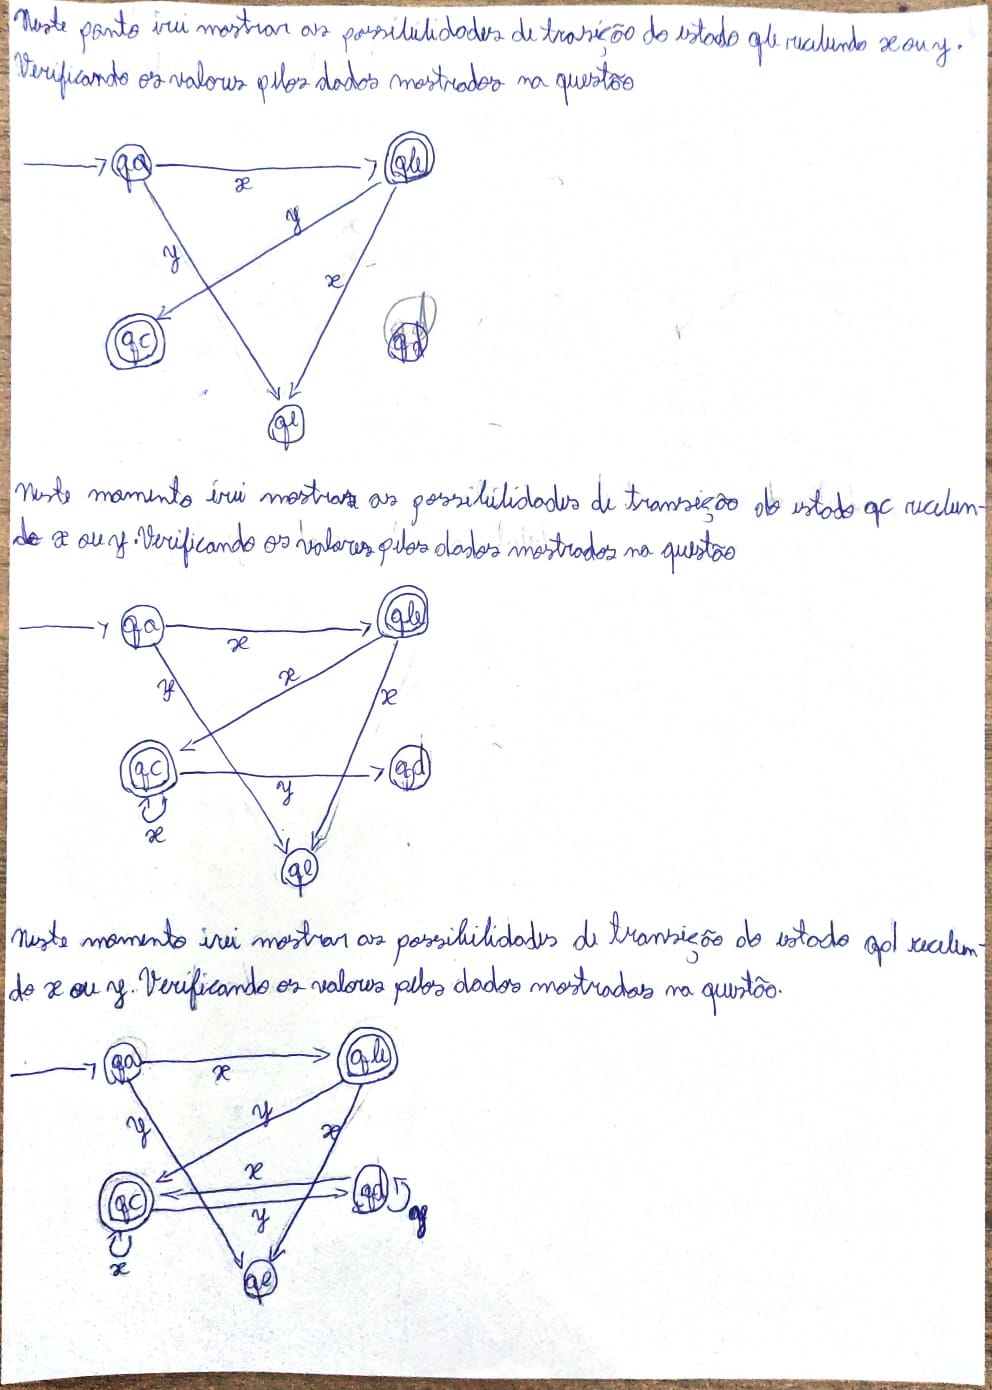 Neste ponto irei mostrar as possibilidades de transição do estado qb recebendo x ou y.
Verificando os valores pelos dados mostrados na questão
qa
x
qb
y
y
x
qc
qd
qe
Neste momento irei mostrar as possibilidades de transição do estado qc recebendo
do x ou y. Verificando os valores pelos dados mostrados na questão
qa
x
qb
y
x
x
qc
y
qd
x
qe
Neste momento irei mostrar as possibilidades de transição do estado qd receben-
do x ou y. Verificando os valores pelos dados mostrados na questão.
qa
x
qb
y
y
x
x
qc
qd
y
y
x
qe